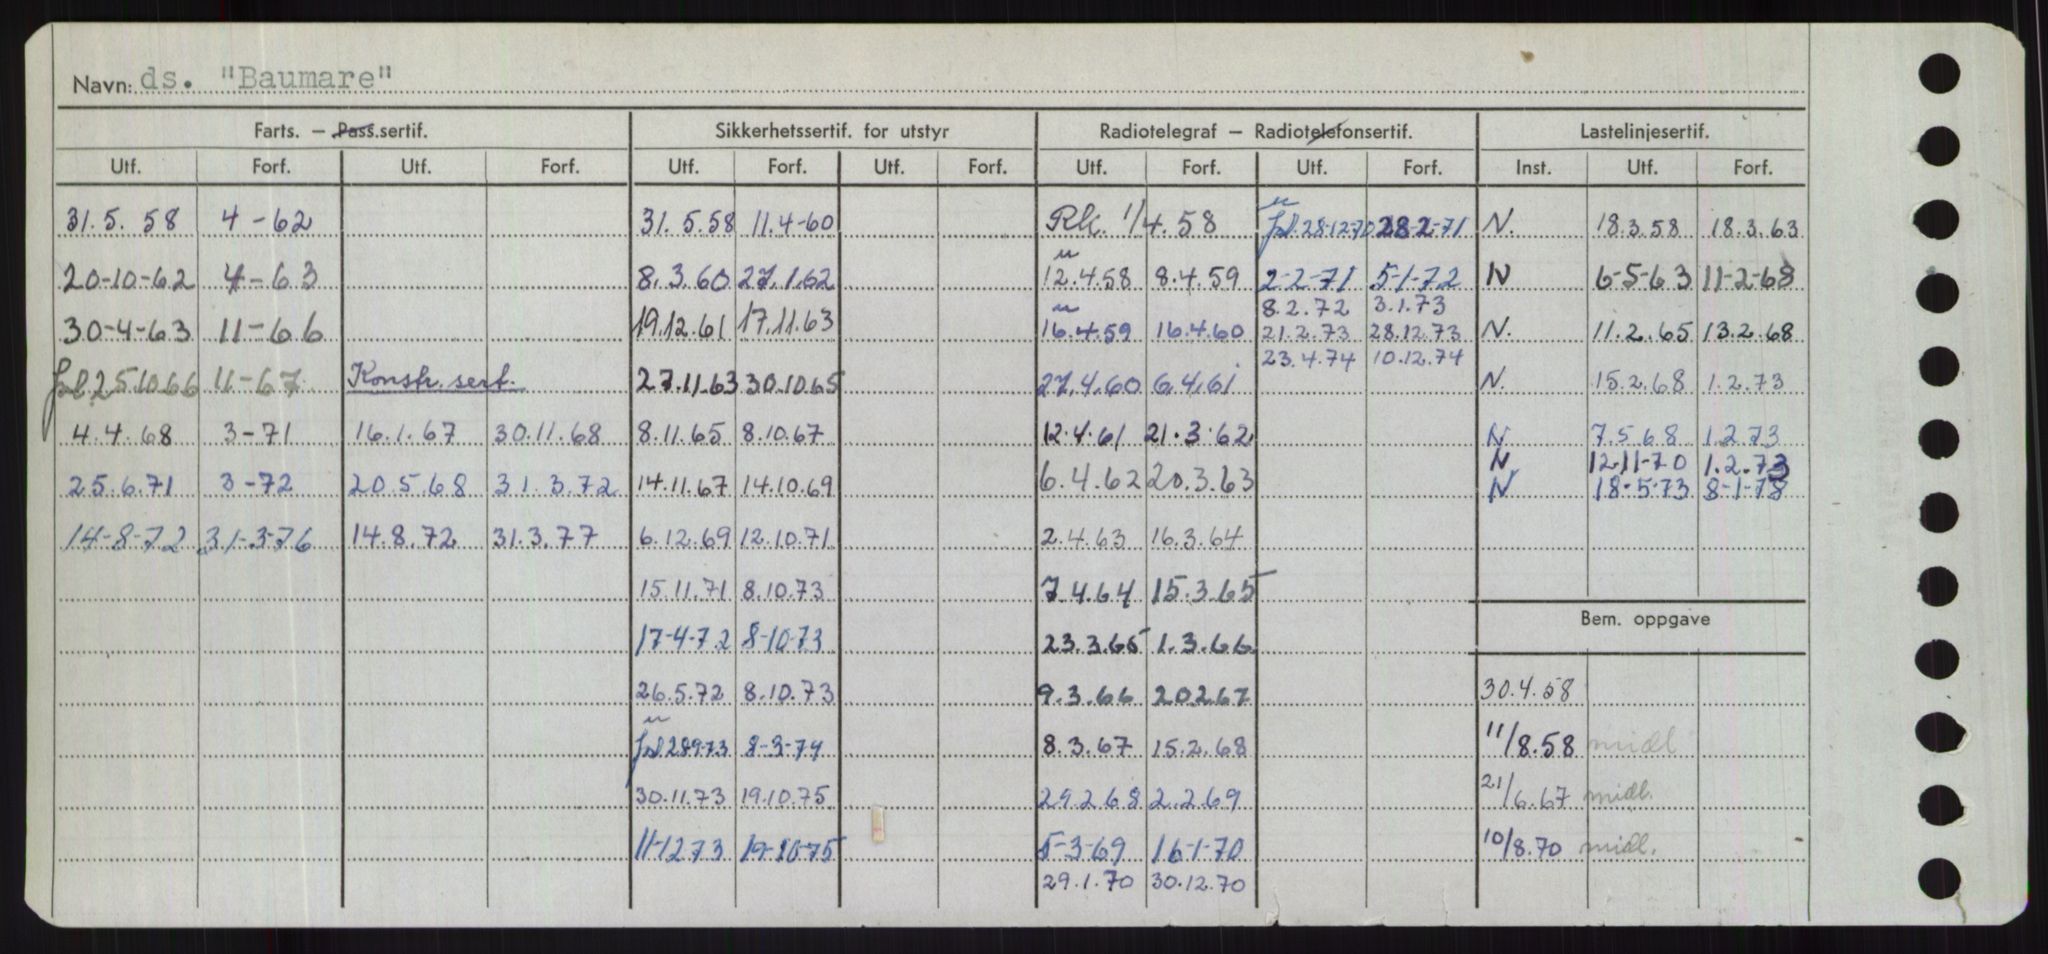 Navn: ds. "Baumare"
Farts. – Pass.sertif. Sikkerhetssertif. for utstyr Radiotelegraf – Radiotelefonsertif. Lastelinjesertif.
Utf. Forf. Utf. Forf. Utf. Forf. Utf. Forf. Utf. Forf. Utf. Forf. Inst. Utf. Forf.
31.5.58 4-62 31.5.58 11.4-60 1/4.58 28.12.70 28-2-71 N. 18.3.58 18.3.63
20-10-62 4-63 8.3.60 27.1.62 12.4.58 8.4.59 2-2-71 5-1-72 N 6-5-63 11-2-68
8.2.72 3.1.73
30-4-63 11-66 19.12.61 17.11.63 16.4.59 16.4.60 21.2.73 28.12.73 N. 11.2.65 13.2.68
23.4.74 10.12.74
25.10.66 11-67 Konstr. sert. 27.11.63 30.10.65 27.4.60 6.4.61 N. 15.2.68 1.2.73
4.4.68 3-71 16.1.67 30.11.68 8.11.65 8.10.67 12.4.61 21.3.62 N 7.5.68 1.2.73
N 12.11-70 1.2.73
25.6.71 3-72 20.5.68 31.3.72 14.11.67 14.10.69 6.4.62 20.3.63 N 18.5.73 8-1-78
14-8-72 31-3-76 14.8.72 31.3.77 6.12.69 12.10.71 2.4.63 16.3.64
15.11.71 8.10.73 7.4.64 15.3.65
Bem. oppgave
17-4-72 8-10-73 23.3.65 1.3.66
26.5.72 8.10.73 9.3.66 20.2.67 30.4.58
28.9.73 8-3-74 8.3.67 15.2.68 11/8.58 midl
30.11.73 19.10.75 29.2.68 2.2.69 21/6.67 midl.
11-12.73 19-10-75 5-3-69 16-1-70 10/8.70 midl.
29.1.70 30.12.70